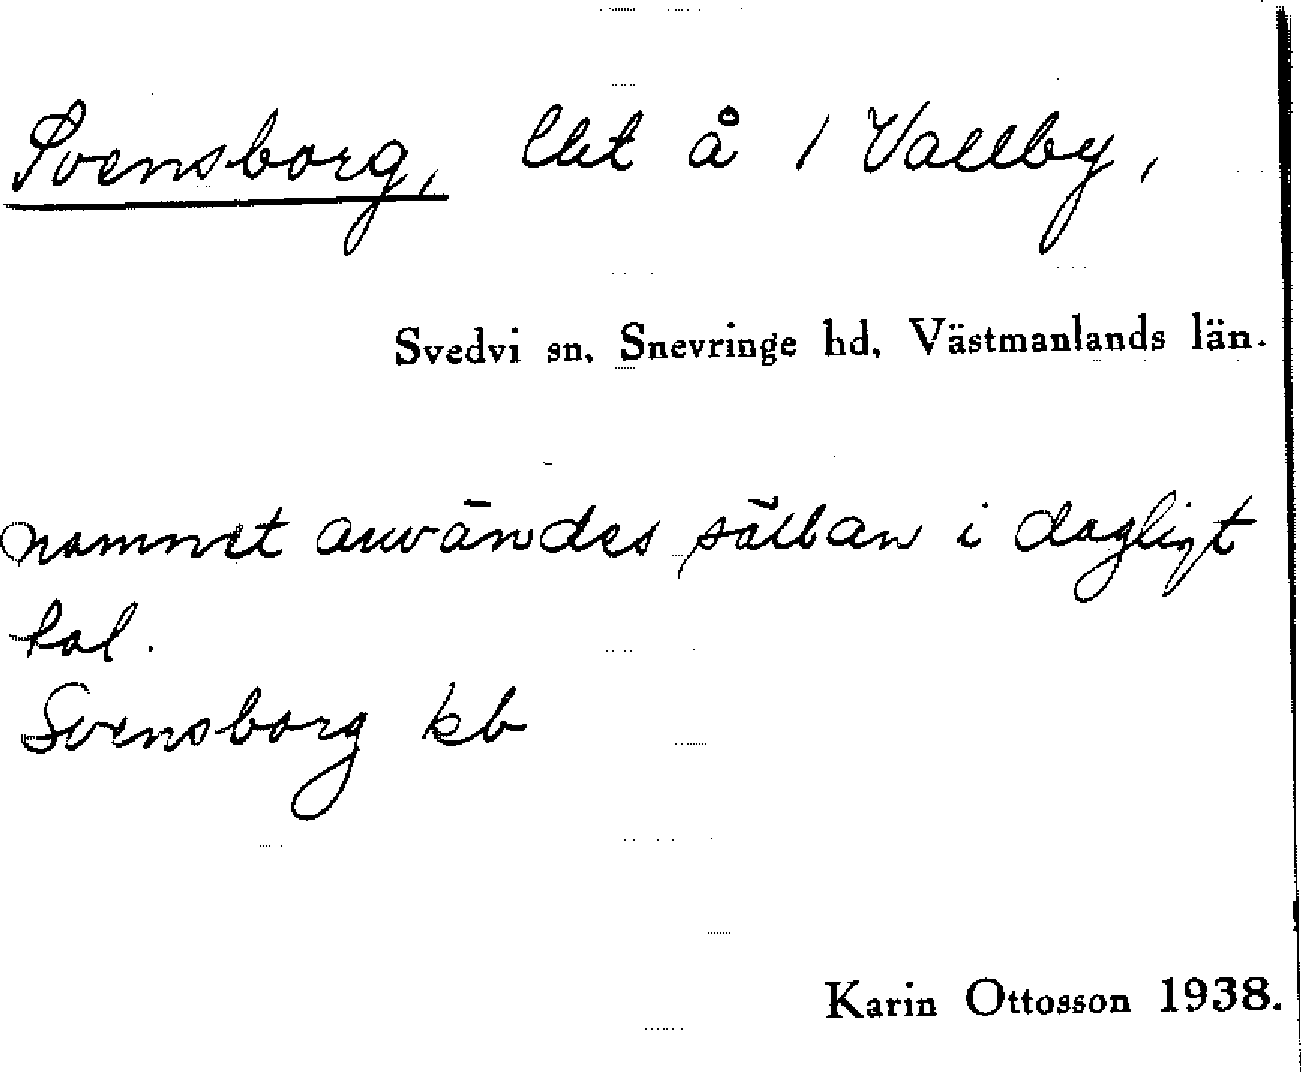 Svensborg, lht å 1 Vallby,
Svedvi sn, Snevringe hd, Västmanlands län.
namnet användes sällan i dagligt
tal.
Svensborg kb
Karin Ottosson 1938.